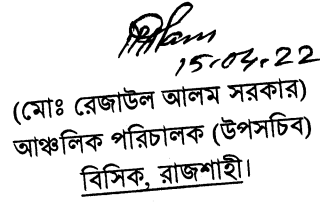 15.04.22
(মোঃ রেজাউল আলম সরকার)
আঞ্চলিক পরিচালক (উপসচিব)
বিসিক, রাজশাহী।